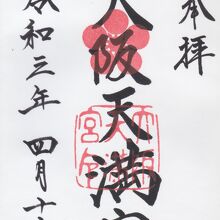 奉拝
大阪天満宮
令和三年 四月十